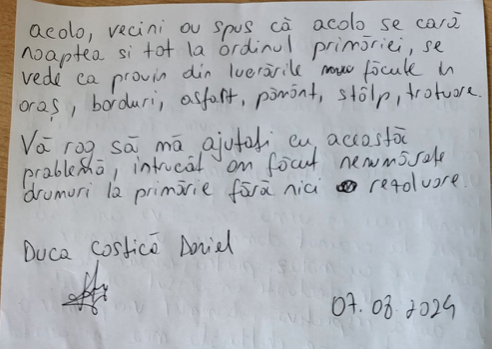 acolo, vecini au spus că acolo se cară
noaptea si tot la ordinul primăriei, se
vede ca provin din lucrările făcute în
oraș, borduri, asfalt, pământ, stâlp, trotuare.
Vă rog să mă ajutați cu această
problemă, întrucât am făcut nenumărate
drumuri la primărie fără nici rezolvare.
Duca Costică Doriel
07.08.2024